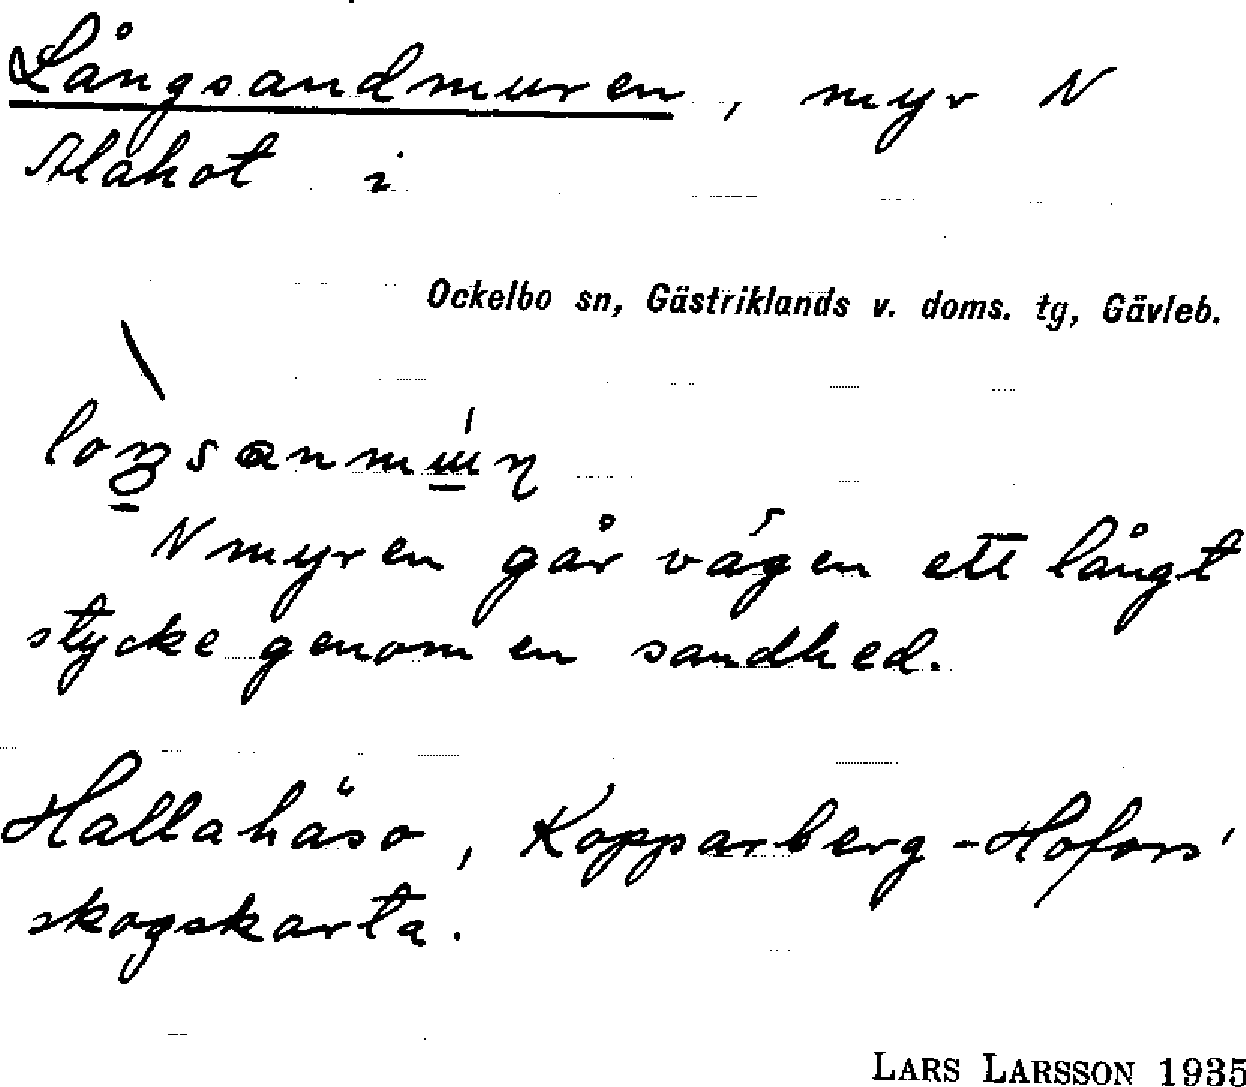 Långsandmuren, myr N
i
Ockelbo sn, Gästriklands v. doms. tg, Gävleb.
N myren går vägen ett långt
stycke genom en sandhed.
Hallahåsö, Kopparberg-Hofors'
skogskarta.
LARS LARSSON 1935